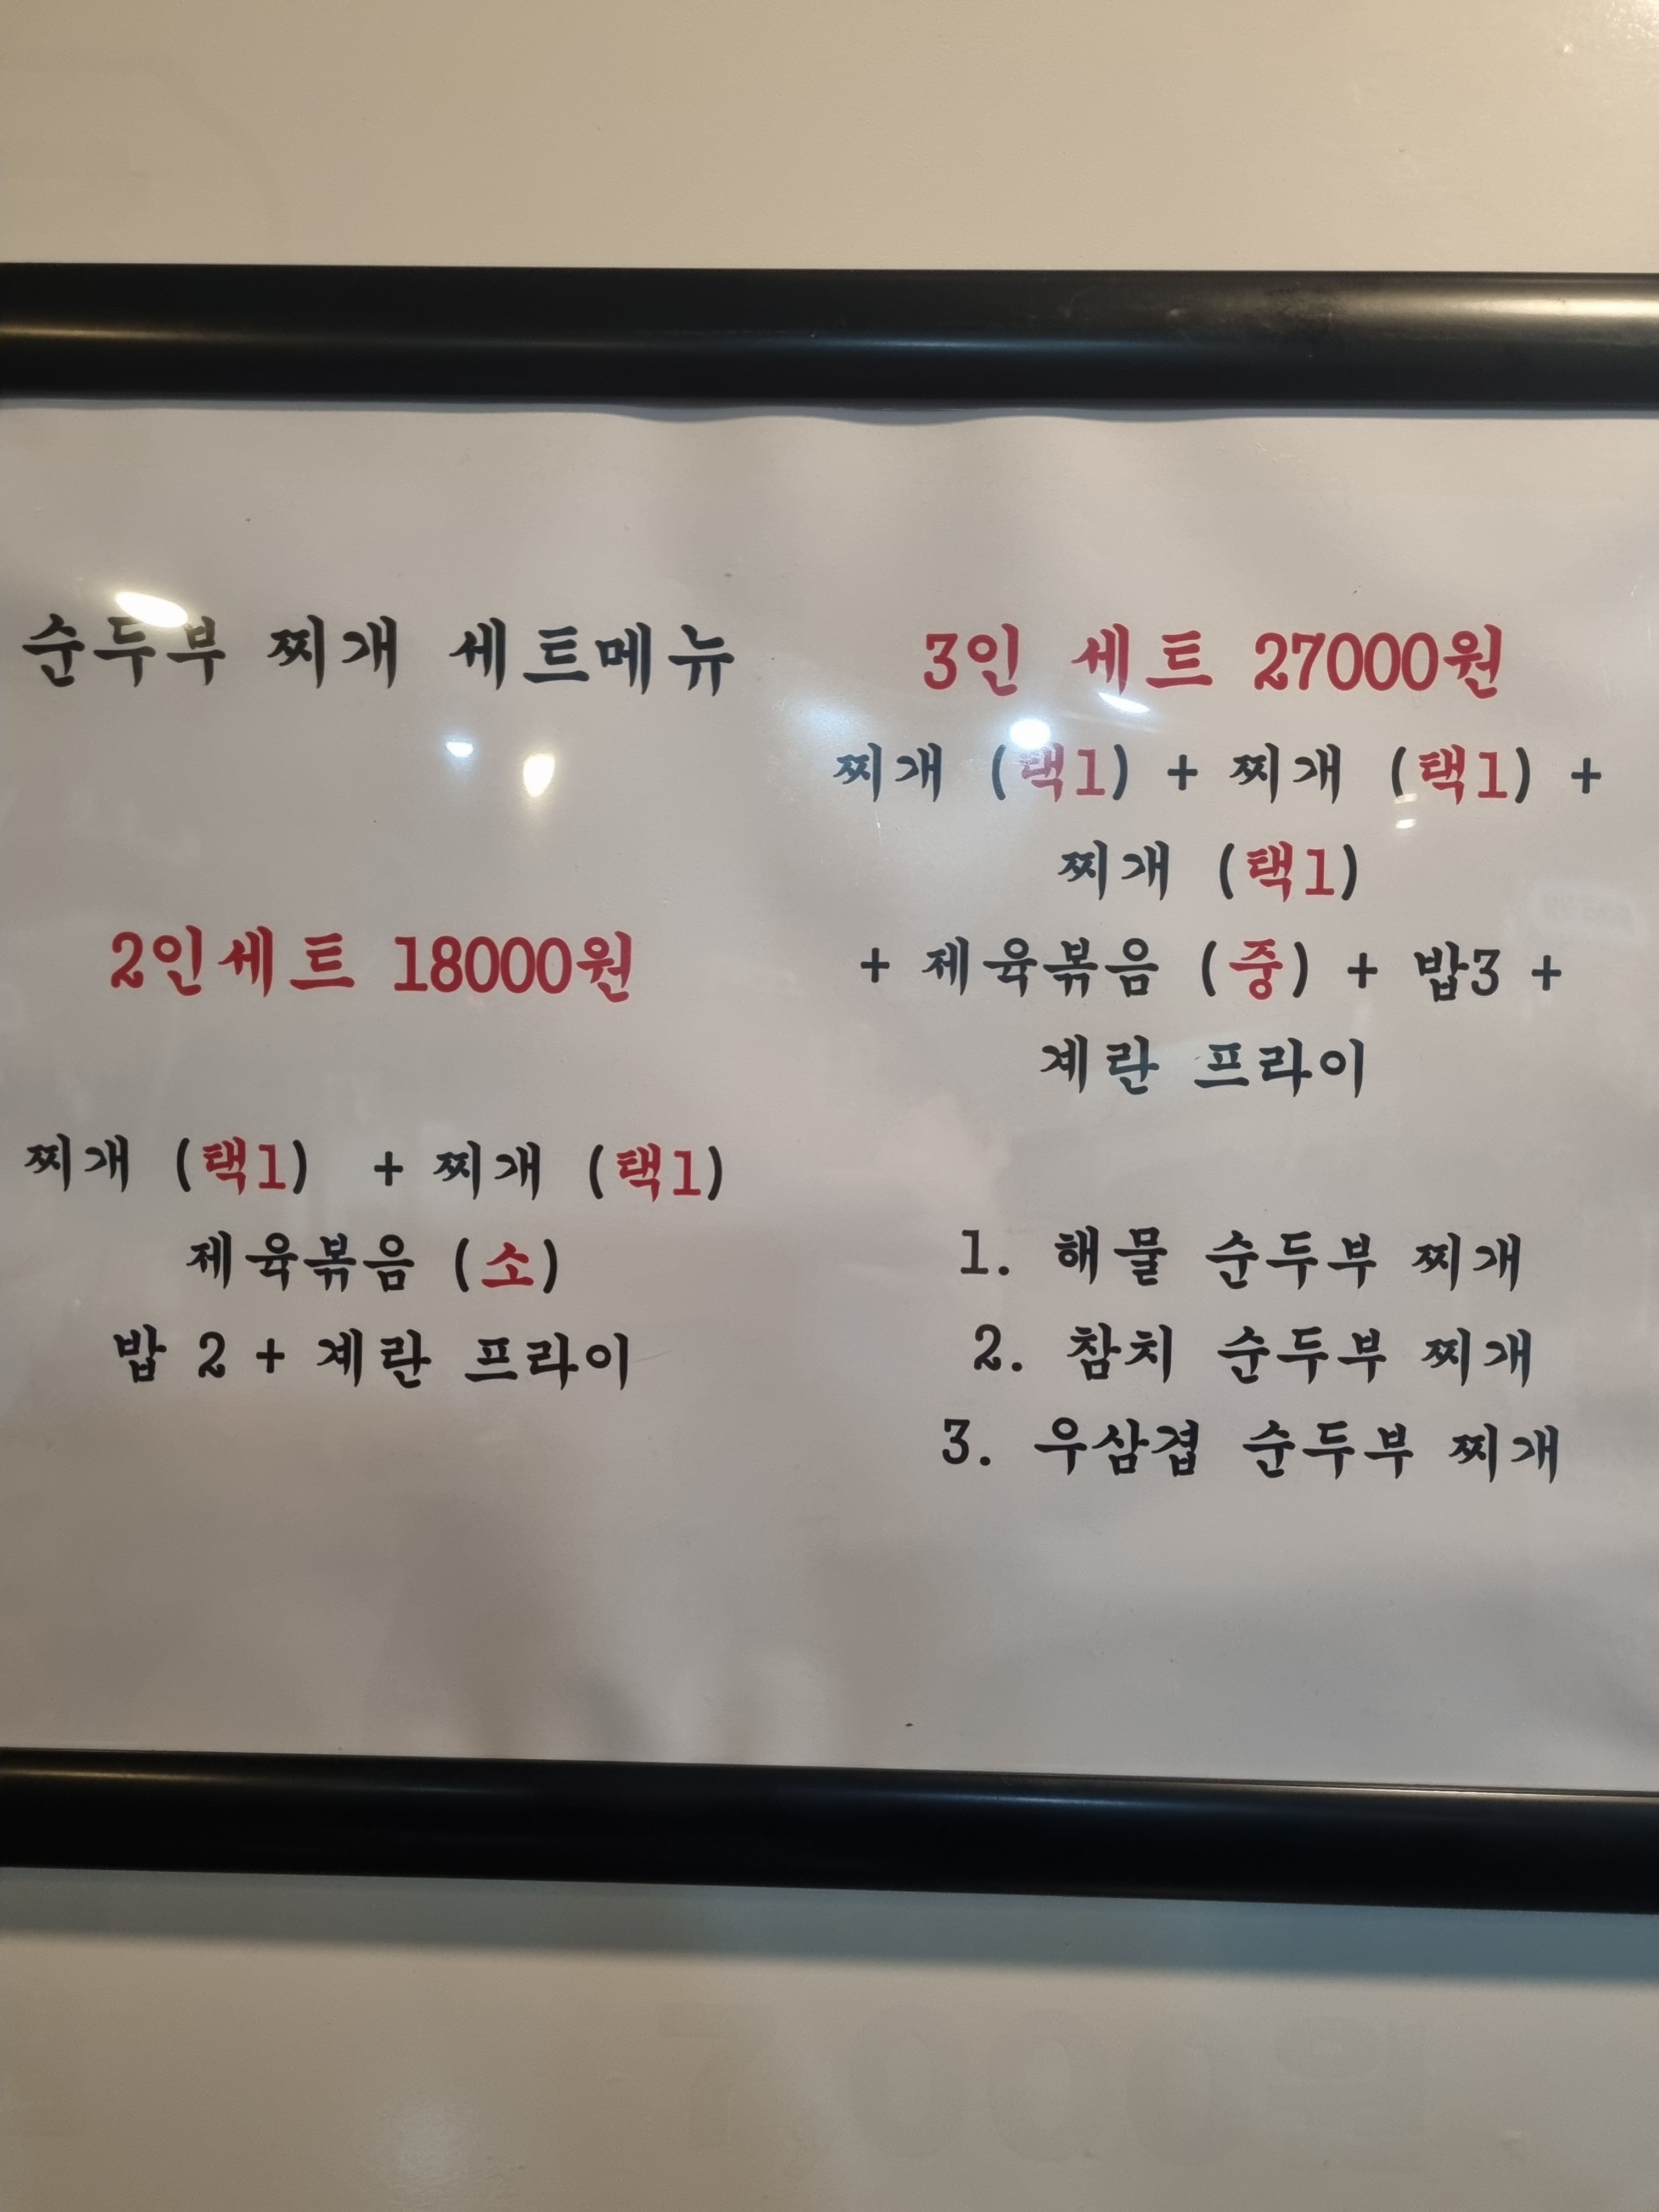 순두부 찌개 세트메뉴
2인세트 18000원
찌개 (택1) + 찌개 (택1)
제육볶음 (소)
밥 2 + 계란 프라이
3인 세트 27000원
찌개 (택1) + 찌개 (택1) +
찌개 (택1)
+ 제육볶음 (중) + 밥3 +
계란 프라이
1. 해물 순두부 찌개
2. 참치 순두부 찌개
3. 우삼겹 순두부 찌개